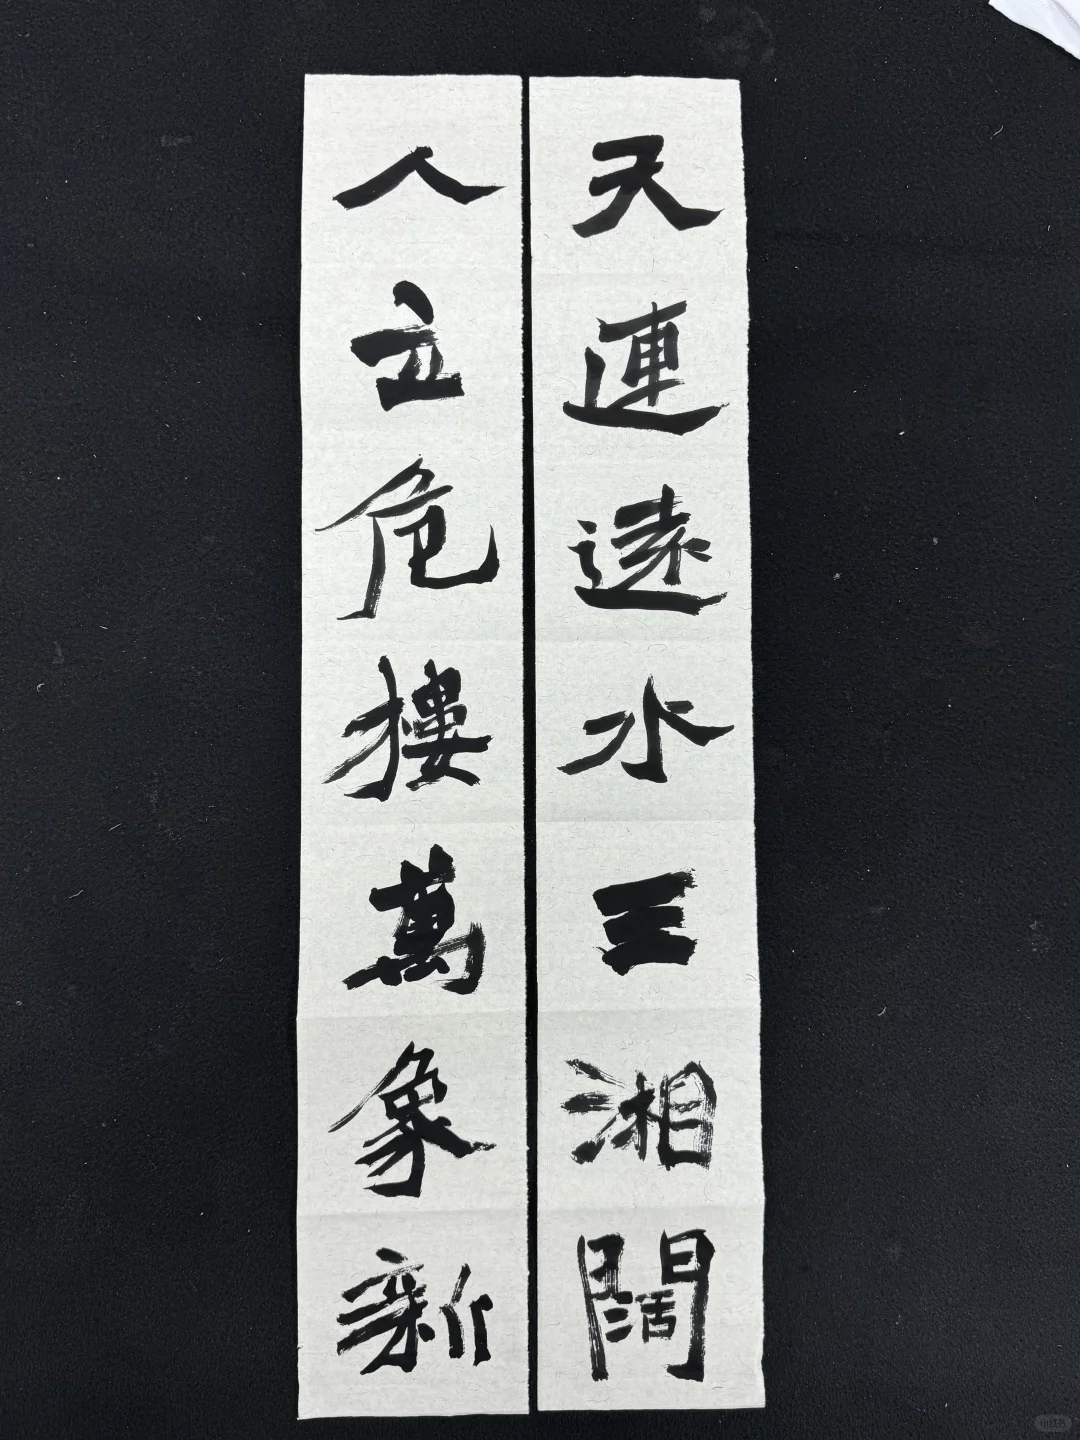 天連遠水三湘闊
人立危樓萬象新
小红书